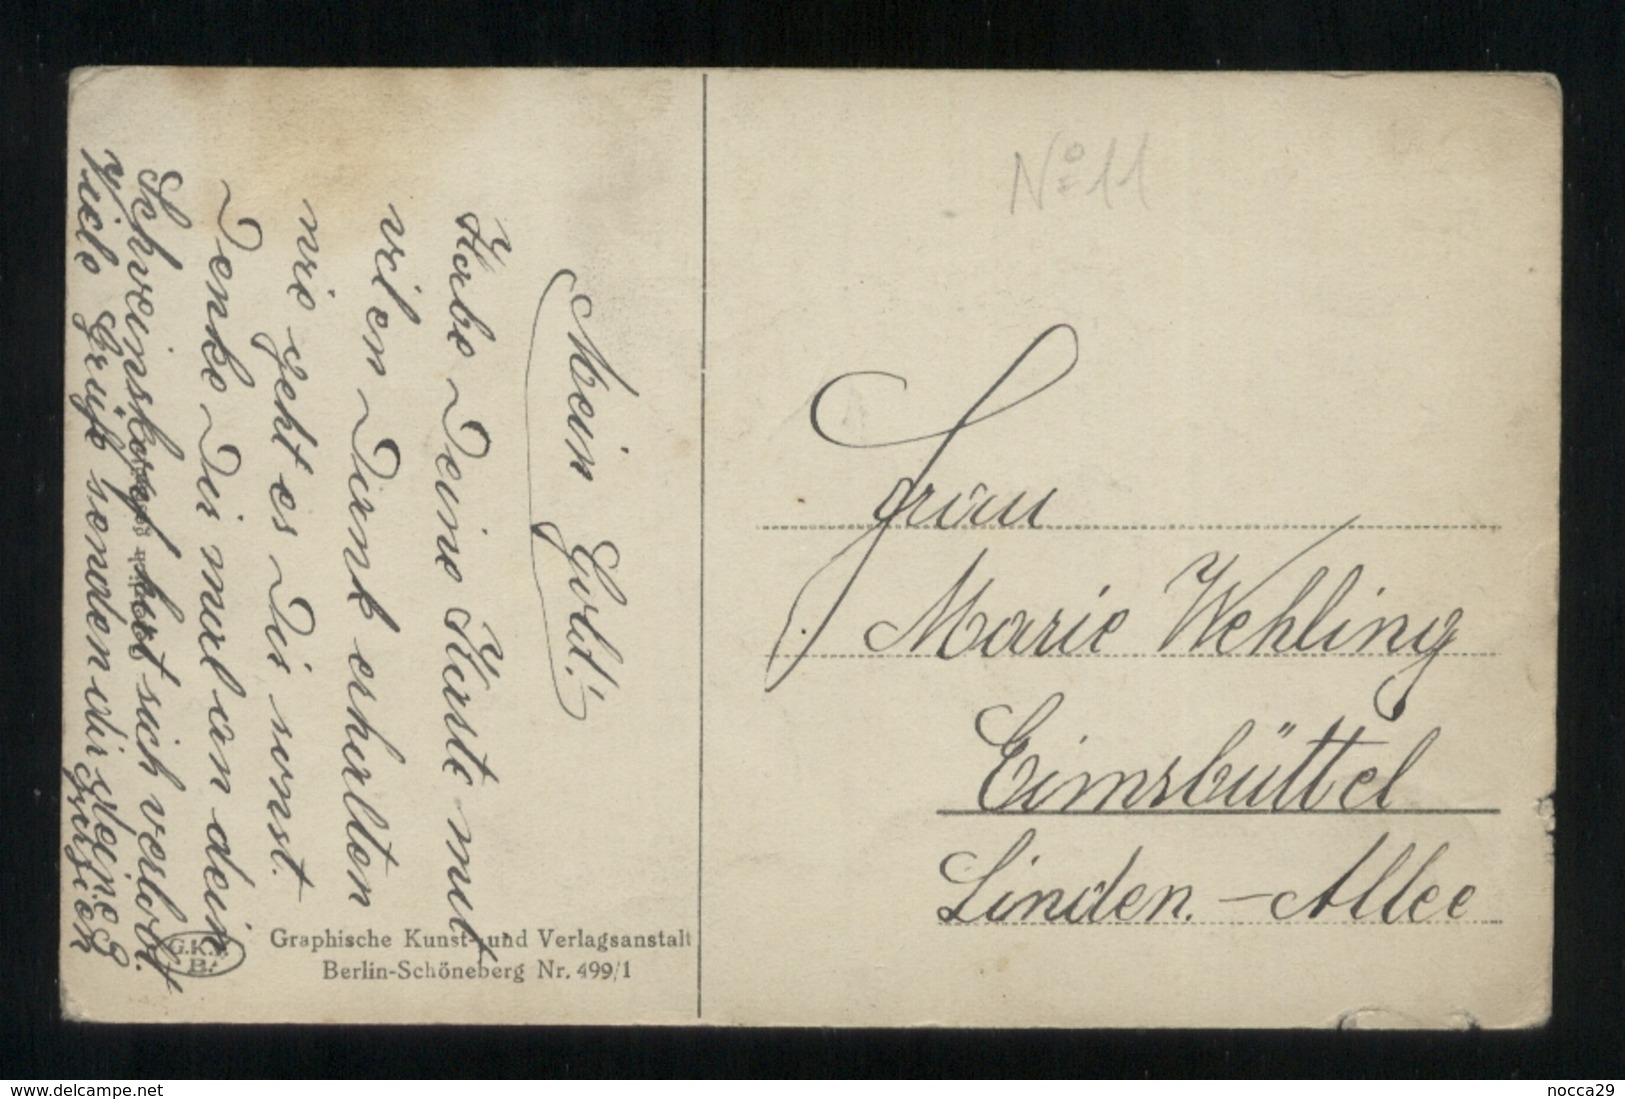 Mein Gold!
Habe Deine Karte mit
vilen Dank erhalten
wie geht es Dir sonst.
Denke Dir mal an dein
Schweinskopf hat sich verlobt.
Viele Grüße senden dir deine
Graphische Kunst- und Verlagsanstalt
Berlin-Schöneberg Nr. 499/1
G.K.V.
B.
No 11
Frau
Marie Wehling
Eimsbüttel
Linden.-Allee
delcampe.net
nocca29